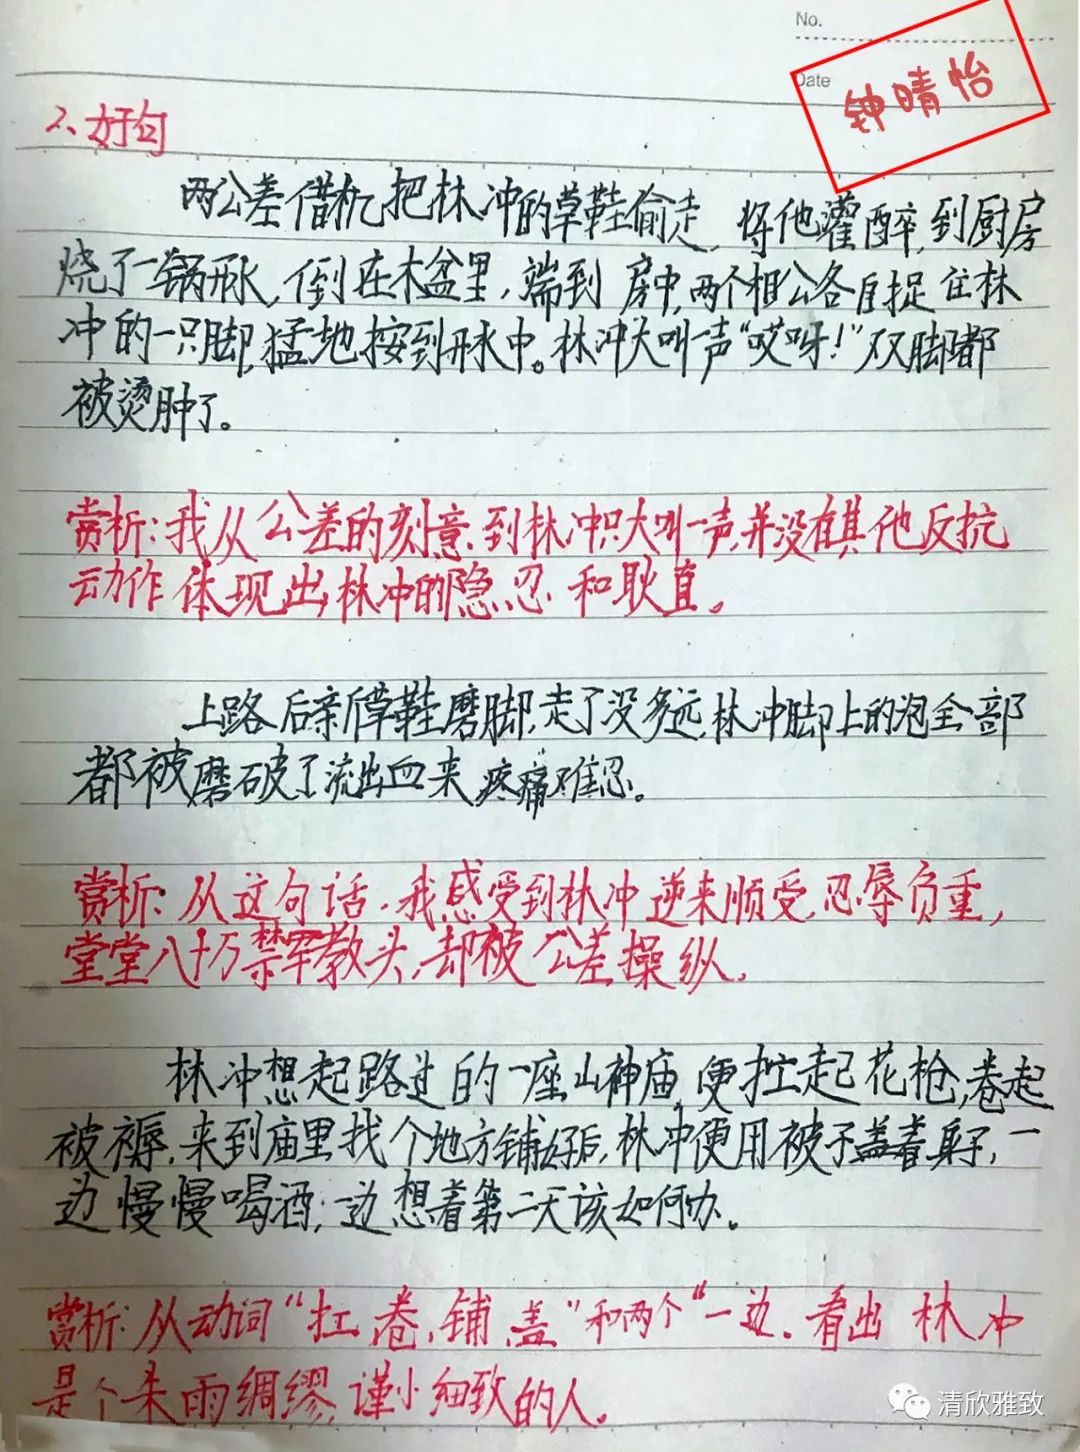 No.
Date
钟晴怡
2、好句
两公差借机把林冲的草鞋偷走，将他灌醉，到厨房
烧了一锅开水，倒在木盆里，端到房中，两个相公各自捉住林
冲的一只脚，猛地按到开水中。林冲大叫一声“哎呀！”双脚都
被烫肿了。
赏析：我从公差的刻意，到林冲只大叫一声，并没有其他反抗
动作体现出林冲的隐忍和耿直。
上路后新草鞋磨脚，走了没多远，林冲脚上的泡全部
都被磨破了流出血来，疼痛难忍。
赏析：从这句话，我感受到林冲逆来顺受，忍辱负重，
堂堂八十万禁军教头，却被公差操纵。
林冲想起路过的一座山神庙，便扛起花枪，卷起
被褥，来到庙里找个地方铺好后，林冲便用被子盖着身子，一
边慢慢喝酒；一边想着第二天该如何办。
赏析：从动词“扛、卷、铺、盖”和两个“一边”看出林冲
是个未雨绸缪，谨小细致的人。
清欣雅致